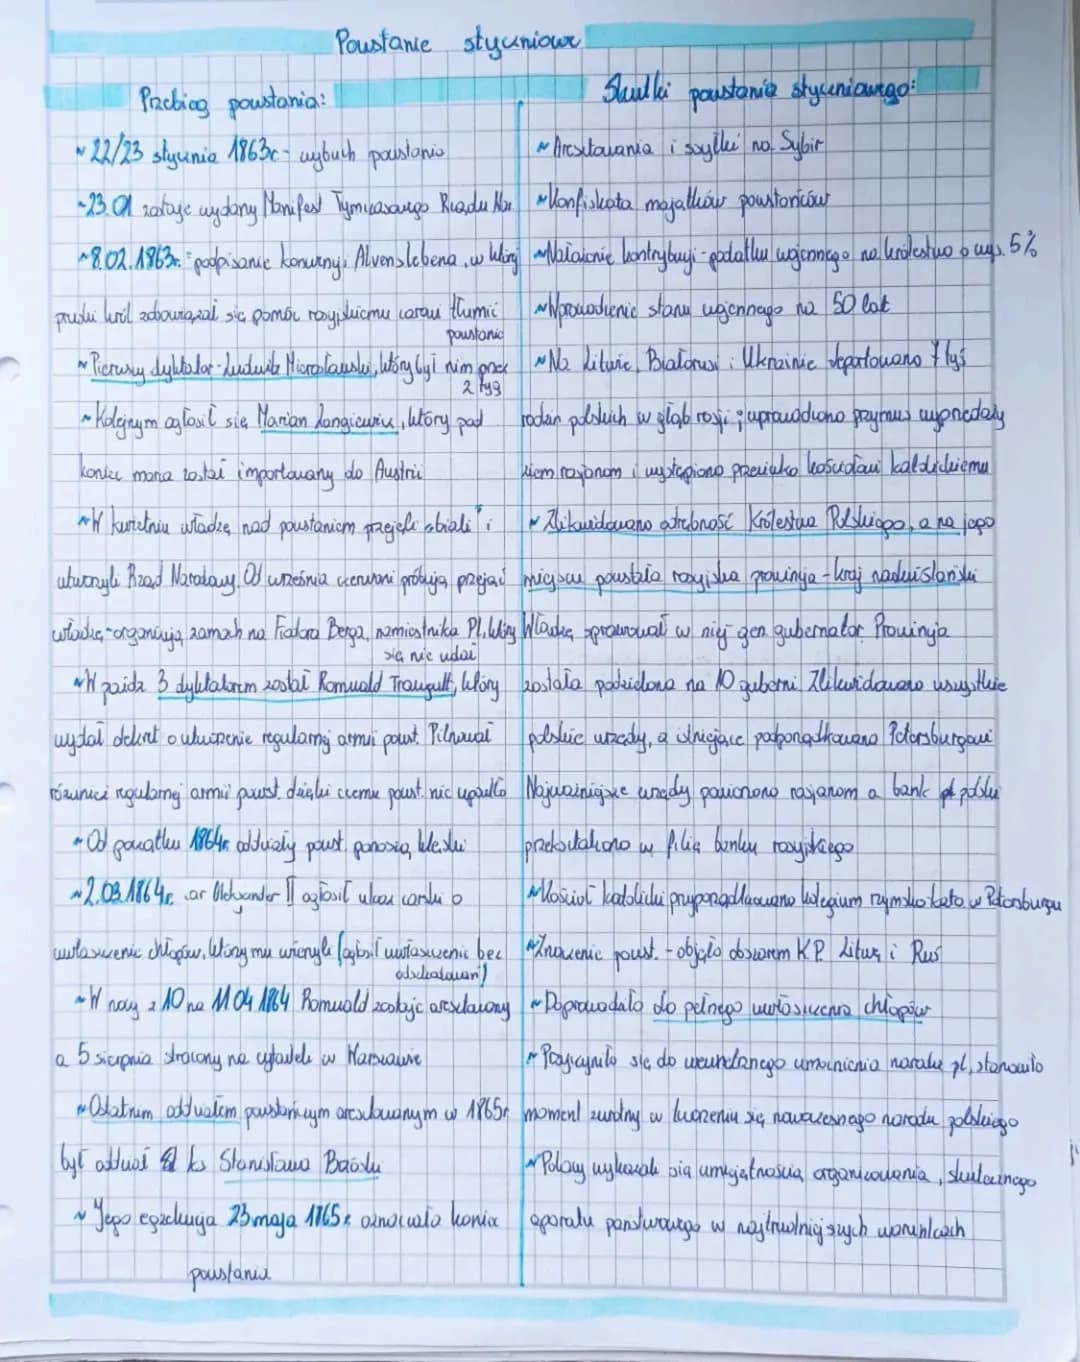 Powstanie styczniowe
Przebieg powstania:
~22/23 stycznia 1863r - wybuch powstania
~23.01 zostaje wydany Manifest Tymczasowego Rządu Nar.
~8.02.1863r. podpisanie konwencji Alvenslebena, w której
pruski król zobowiązał się pomóc rosyjskiemu carowi tłumić
powstanie
~Pierwszy dyktator - Ludwik Mierosławski, który był nim przez
2 tyg
~Kolejnym ogłosił się Marian Langiewicz, który pod
koniec marca został importowany do Austrii
~W kwietniu władzę nad powstaniem przejęli „biali" i
utworzyli Rząd Narodowy. Od września czerwoni próbują przejąć
władzę - organizują zamach na Fiodora Berga, namiestnika Pl, który
się nie udał
~W paźdz 3 dyktatorem został Romuald Traugutt, który
wydał dekret o utworzenie regularnej armii powst. Pilnował
różnicy regularnej armii powst. dzięki czemu powst. nie upadło
~Od początku 1864r. oddziały powst. ponoszą klęski
~2.03.1864r. car Aleksander II ogłosił ukaz carski o
uwłaszczenie chłopów, którzy mu wierzyli (ogłosił uwłaszczenie bez
odszkodowań)
~W nocy z 10 na 11 04 1864 Romuald zostaje aresztowany
a 5 sierpnia stracony na cytadeli w Warszawie
~Ostatnim oddziałem powstańczym aresztowanym w 1865r
był oddział ks Stanisława Brzóski
~Jego egzekucja 23 maja 1865r. oznaczała koniec
powstania
Skutki powstania styczniowego:
~Aresztowania i zsyłki na Sybir
~Konfiskata majątków powstańców
~Nałożenie kontrybucji - podatku wojennego na królestwo o wys. 5%
~Wprowadzenie stanu wojennego na 50 lat
~Na Litwie, Białorusi i Ukrainie deportowano tyś
rodzin polskich w głąb rosji; wprowadzono przymus wyprzedaży
ziem rosjanom i wystąpiono przeciwko kościołowi katolickiemu
~Zlikwidowano odrębność Królestwa Polskiego, a na jego
miejscu powstała rosyjska prowincja - kraj nadwiślański
Władzę sprawował w niej gen. gubernator. Prowincja
została podzielona na 10 guberni. Zlikwidowano wszystkie
polskie urzędy, a istniejące podporządkowano Petersburgowi
Najważniejsze urzędy powierzono rosjanom a bank polski
przekształcono w filię banku rosyjskiego
~Kościół katolicki przyporządkowano kolegium rzymsko kato w Petersburgu
~Znaczenie powst. - objęło obszarem K.P. Litwę i Ruś
~Doprowadziło do pełnego uwłaszczenia chłopów
~Przyczyniło się do wewnętrznego umocnienia narodu pl, stanowiło
moment zwrotny w tworzeniu się nowoczesnego narodu polskiego
~Polacy wykazali się umiejętnością organizowania, skutecznego
aparatu państwowego w najtrudniejszych warunkach